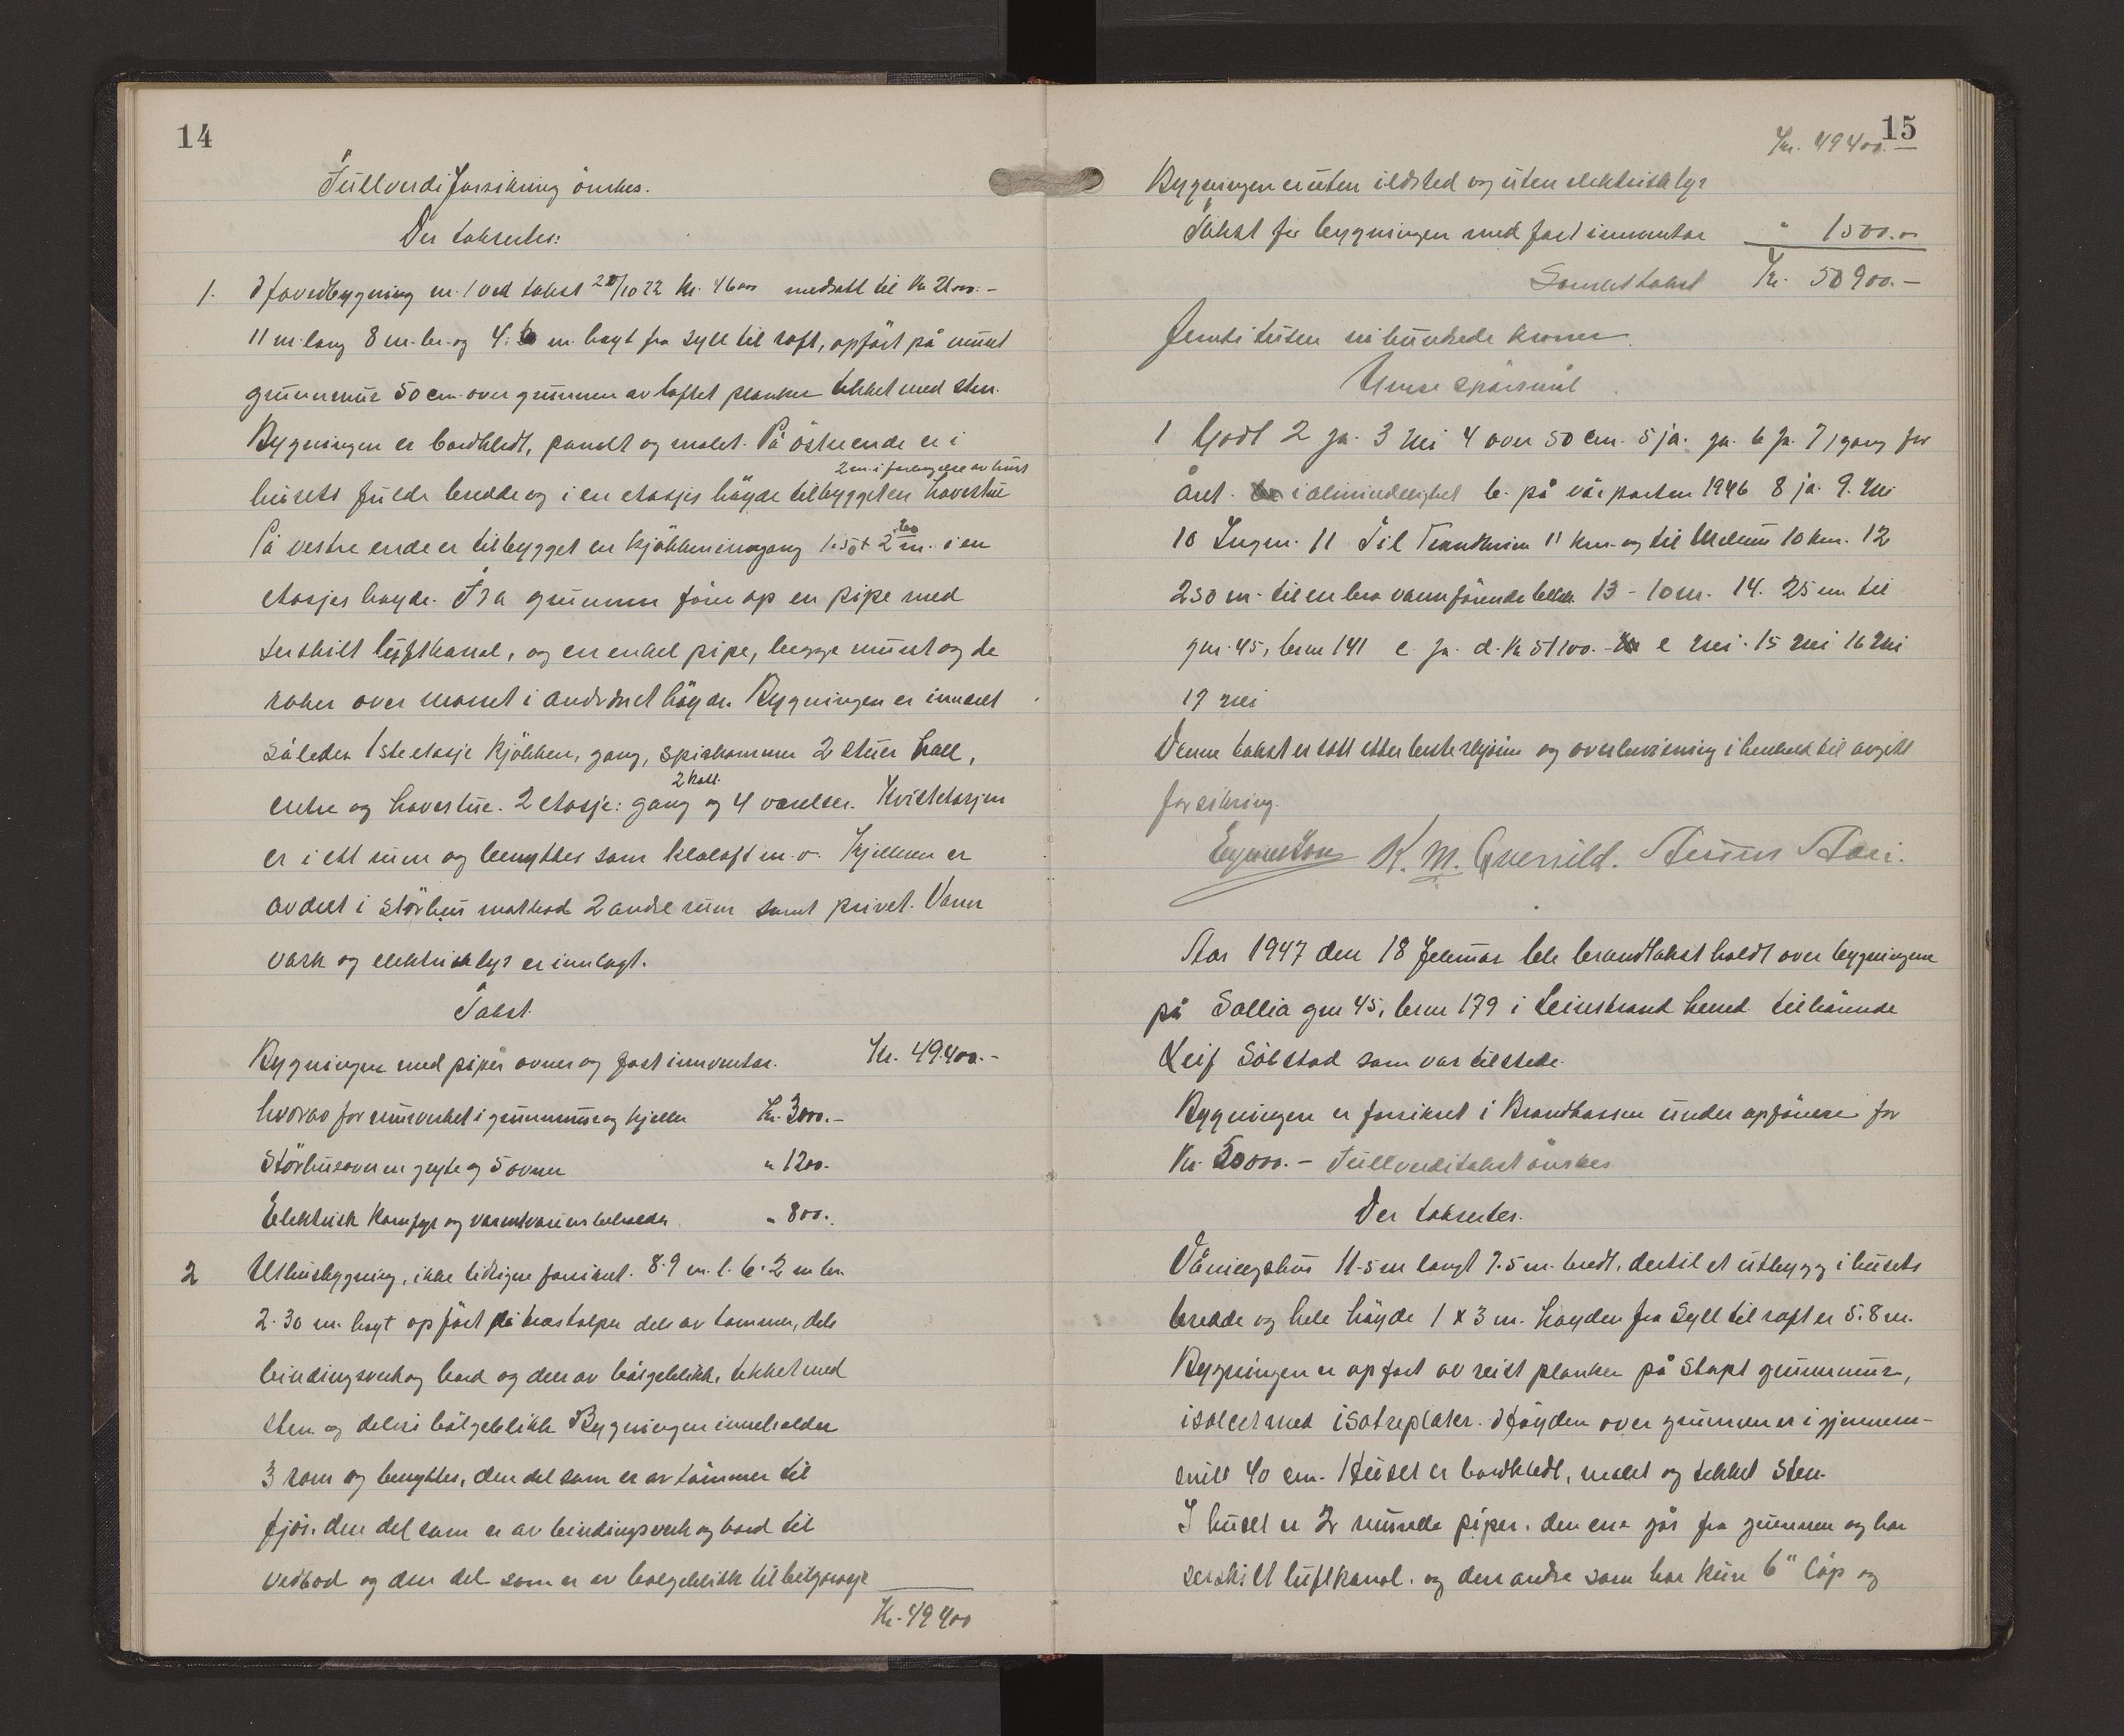 14
Fullverdiforsikring ønskes.
Der taksertes:
1. Hovedbygning nr. 1 ved takst 20/10 22 kr. 4600 nedsatt til kr 21000.-
11 m lang 8 m. br. og 4. m høyt fra syll til raft, opført på muret
grunnmur 50 cm over grunnen av laftet planker tekket med sten.
Bygningen er bordkledt, panelt og malet. På østre ende er i
2 m. i forlengelse av huset
husets fulde bredde og i en etasjes høyde tilbygget en havestue
På vestre ende er tilbygget en kjøkkeninngang 1.50 x 2 m. i en
etasjes høyde. Fra grunnen fører op en pipe med
særskilt luftkanal, og en enkel pipe, begge muret og de
raker over mønet i anordnet høyde. Bygningen er innredet
således 1ste etasje kjøkken, gang, spiskammer 2 stuer hall,
2 kott
entre og havestue. 2 etasje: gang og 4 værelser. Kvistetasjen
er i ett rum og benyttes som kleloft m.v. Kjelleren er
avdelt i størhus matbod 2 andre rum samt privet. Vann
vask og elektrisk lys er innlagt.
Takst.
Bygningen med piper ovner og fast innventar. Kr. 49400.-
hvorav for murverket i grunnmur og kjeller Kr. 3000.-
Størhusovn en gryte og 5 ovner " 1200.-
Elektrisk komfyr og varmtvannsbeholder " 800.-
2 Uthusbygning, ikke tidligere forsikret. 8.9 m. l. 6.2 m br.
2.30 m. høyt opført på trestolper dels av tømmer, dels
bindingsverk og bord og dels av bølgeblikk, tekket med
sten og delvis bølgeblikk Bygningen inneholder
3 rom og benyttes, den del som er av tømmer til
fjøs, den del som er av bindingsverk og bord til
vedbod og den del som er av bølgeblikk til bilgarasje
Kr. 49400
15
Kr. 49400.-
Bygningen er uten ildsted og uten elektrisk lys
Takst for bygningen med fast inventar " 1500.-
Samlet takst Kr. 50900.-
femti tusen ni hundrede kroner.
Almene spørsmål
1 Godt 2 ja. 3 Nei 4 over 50 cm. 5 ja. ja. 6 ja. 7 1 gang for
året. i almindelighet b. på vårparten 1946 8 ja. 9. Nei
10 Ingen. 11 Til Trondheim 11 km. og til Melhus 10 km. 12
250 m. til en bra vannførende bekk 13 - 10 m. 14. 25 m til
gnr. 45, brnr 141 c. ja. d. Kr 51100.- e nei. 15 nei 16 nei
17 nei
Denne takst er satt etter beste skjønn og overbevisning i henhold til avgitt
forsikring.
K. M. Qvenild.
Aar 1947 den 18 februar ble branntakst holdt over bygningene
på Sollia gnr 45, brnr 179 i Leinstrand herred tilhørende
Leif Solstad som var tilstede.
Bygningen er forsikret i Brandkassen under opførelse for
Kr. 20000.- Fullverditakst ønskes
Der takseres.
Våningshus 11.5 m langt 7.5 m. bredt, dertil et utbygg i husets
bredde og hele høyde 1 x 3 m. Høyden fra syll til raft er 5.8 m.
Bygningen er opført av reist planker på støpt grunnmur,
isolert med isotreplater. Høyden over grunnen er i gjennem-
snitt 40 cm. Huset er bordkledt, malet og tekket sten.
I huset er 2 murede piper. den ene går fra grunnen og har
særskilt luftkanal. og den andre som har kun 6" løp og